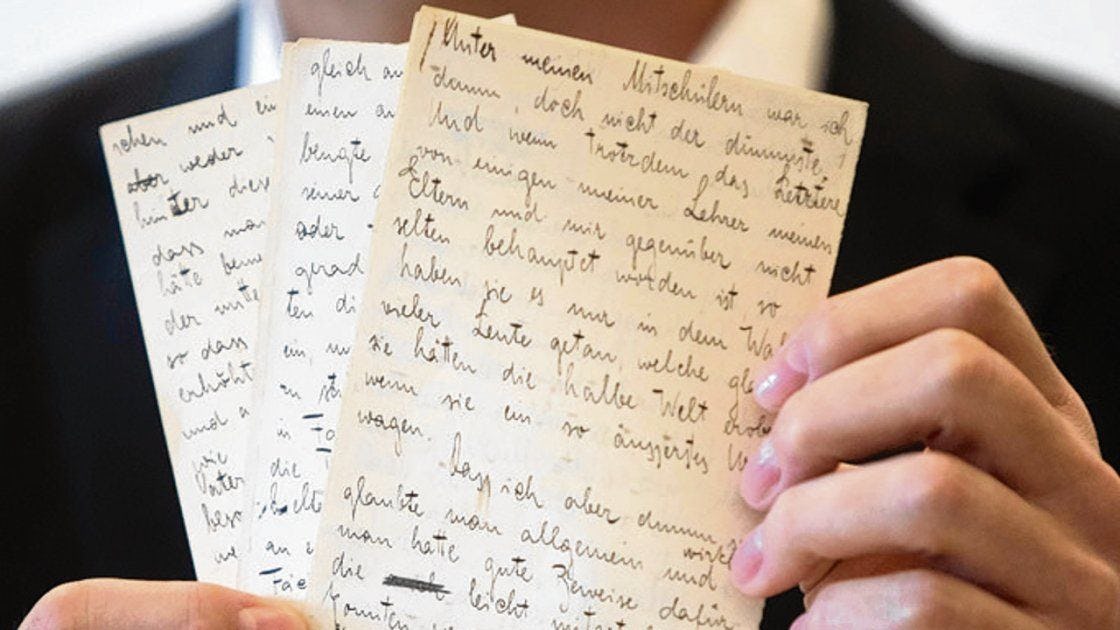 schen und ein
aber weder
hinter diese
dass man
hätte
der mitte
so dass
erhöht
und a
wie
Vater
beso
we
gleich an
einen an
beugte
seiner
oder
gerad
ten di
ein, un
zu
in
die
an
Unter meinen Mitschülern war ich
dumm, doch nicht der dümmste,
Und wenn trotzdem das letztere
von einigen meiner Lehrer meinen
Eltern und mir gegenüber nicht
selten behauptet worden ist, so
haben sie es nur in dem Wah
vieler Leute getan, welche gla
sie hätten die halbe Welt erob
wenn sie ein so äusserstes
wagen.
Dass ich aber dumm
glaubte man allgemein und wirkl
man hatte gute Beweise dafür
die leicht
konnten